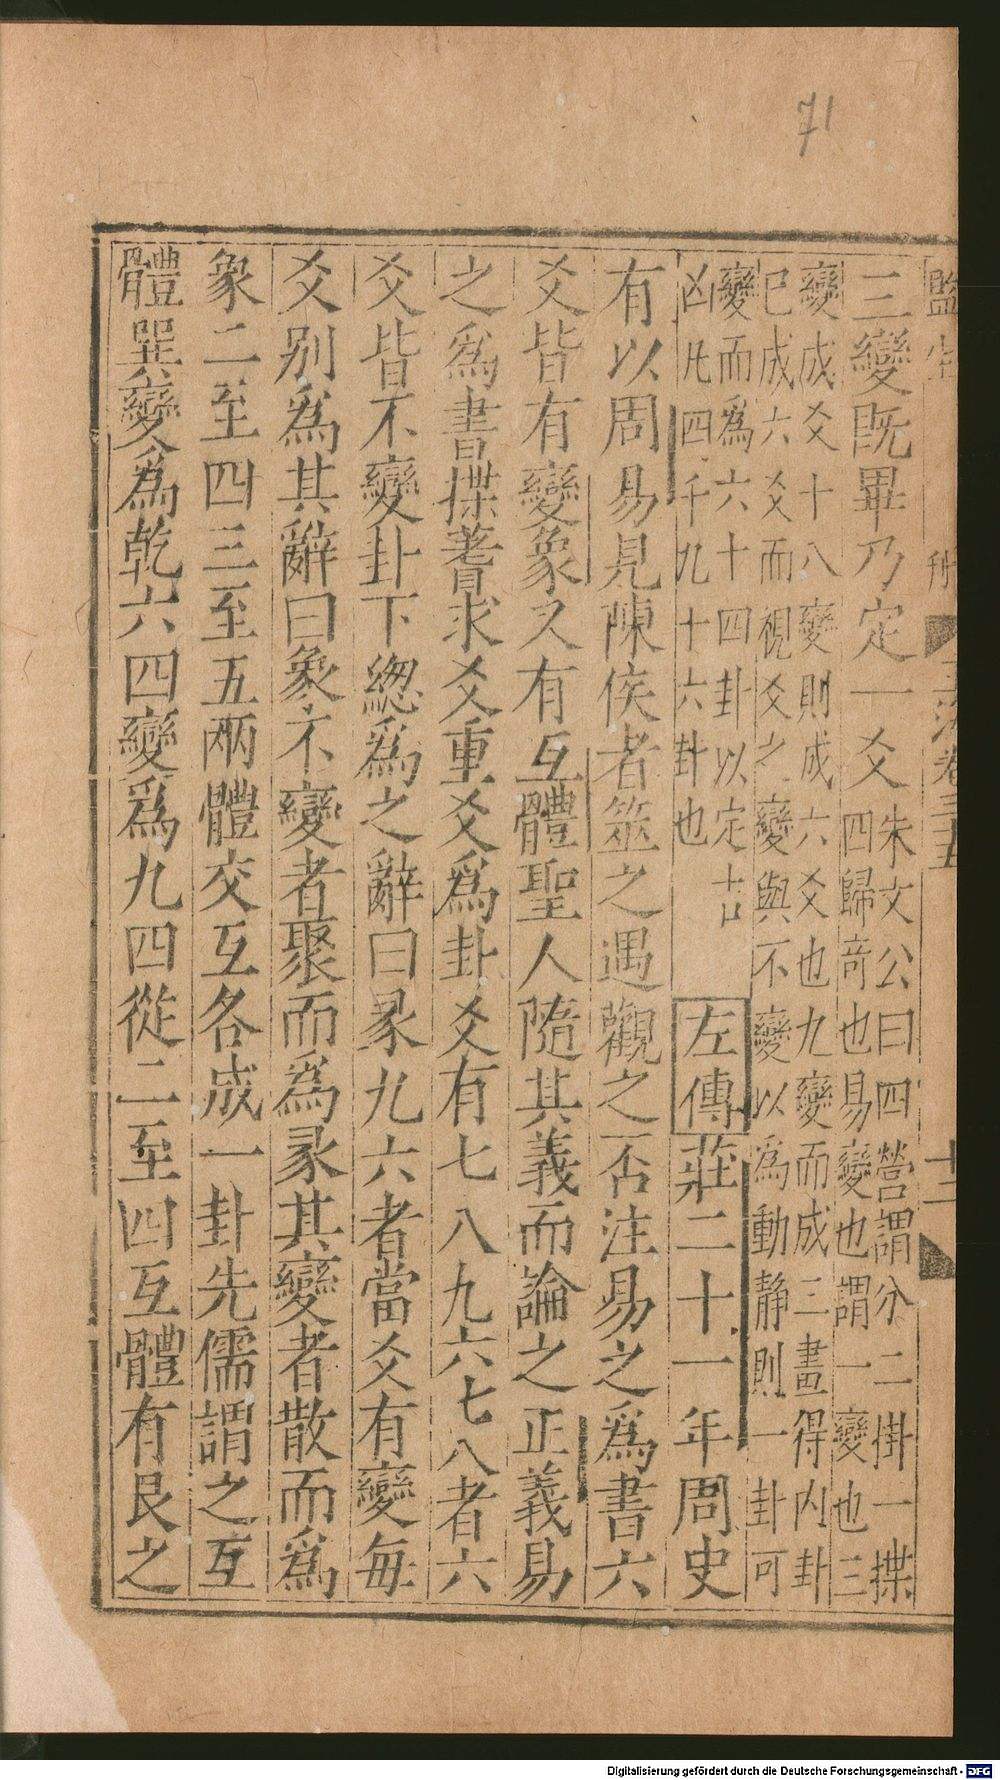 71
監生 刊 玉海卷三十五 十二
三變既畢乃定一爻朱文公曰四營謂分二掛一揲
四歸奇也易變也謂一變也三
變成爻十八變則成六爻也九變而成三畫得内卦
已成六爻而視爻之變與不變以為動静則一卦可
變而爲六十四卦以定吉
凶凡四千九十六卦也
左傳莊二十一年周史
有以周易見陳侯者筮之遇觀之否注易之爲書六
爻皆有變象又有互體聖人隨其義而論之正義易
之爲書揲蓍求爻重爻爲卦爻有七八九六七八者六
爻皆不變卦下緫爲之辭曰彖九六者當爻有變每
爻别爲其辭曰象不變者聚而爲彖其變者散而爲
象二至四三至五兩體交互各成一卦先儒謂之互
體巽變爲乾六四變爲九四從二至四互體有艮之
Digitalisierung gefördert durch die Deutsche Forschungsgemeinschaft - DFG